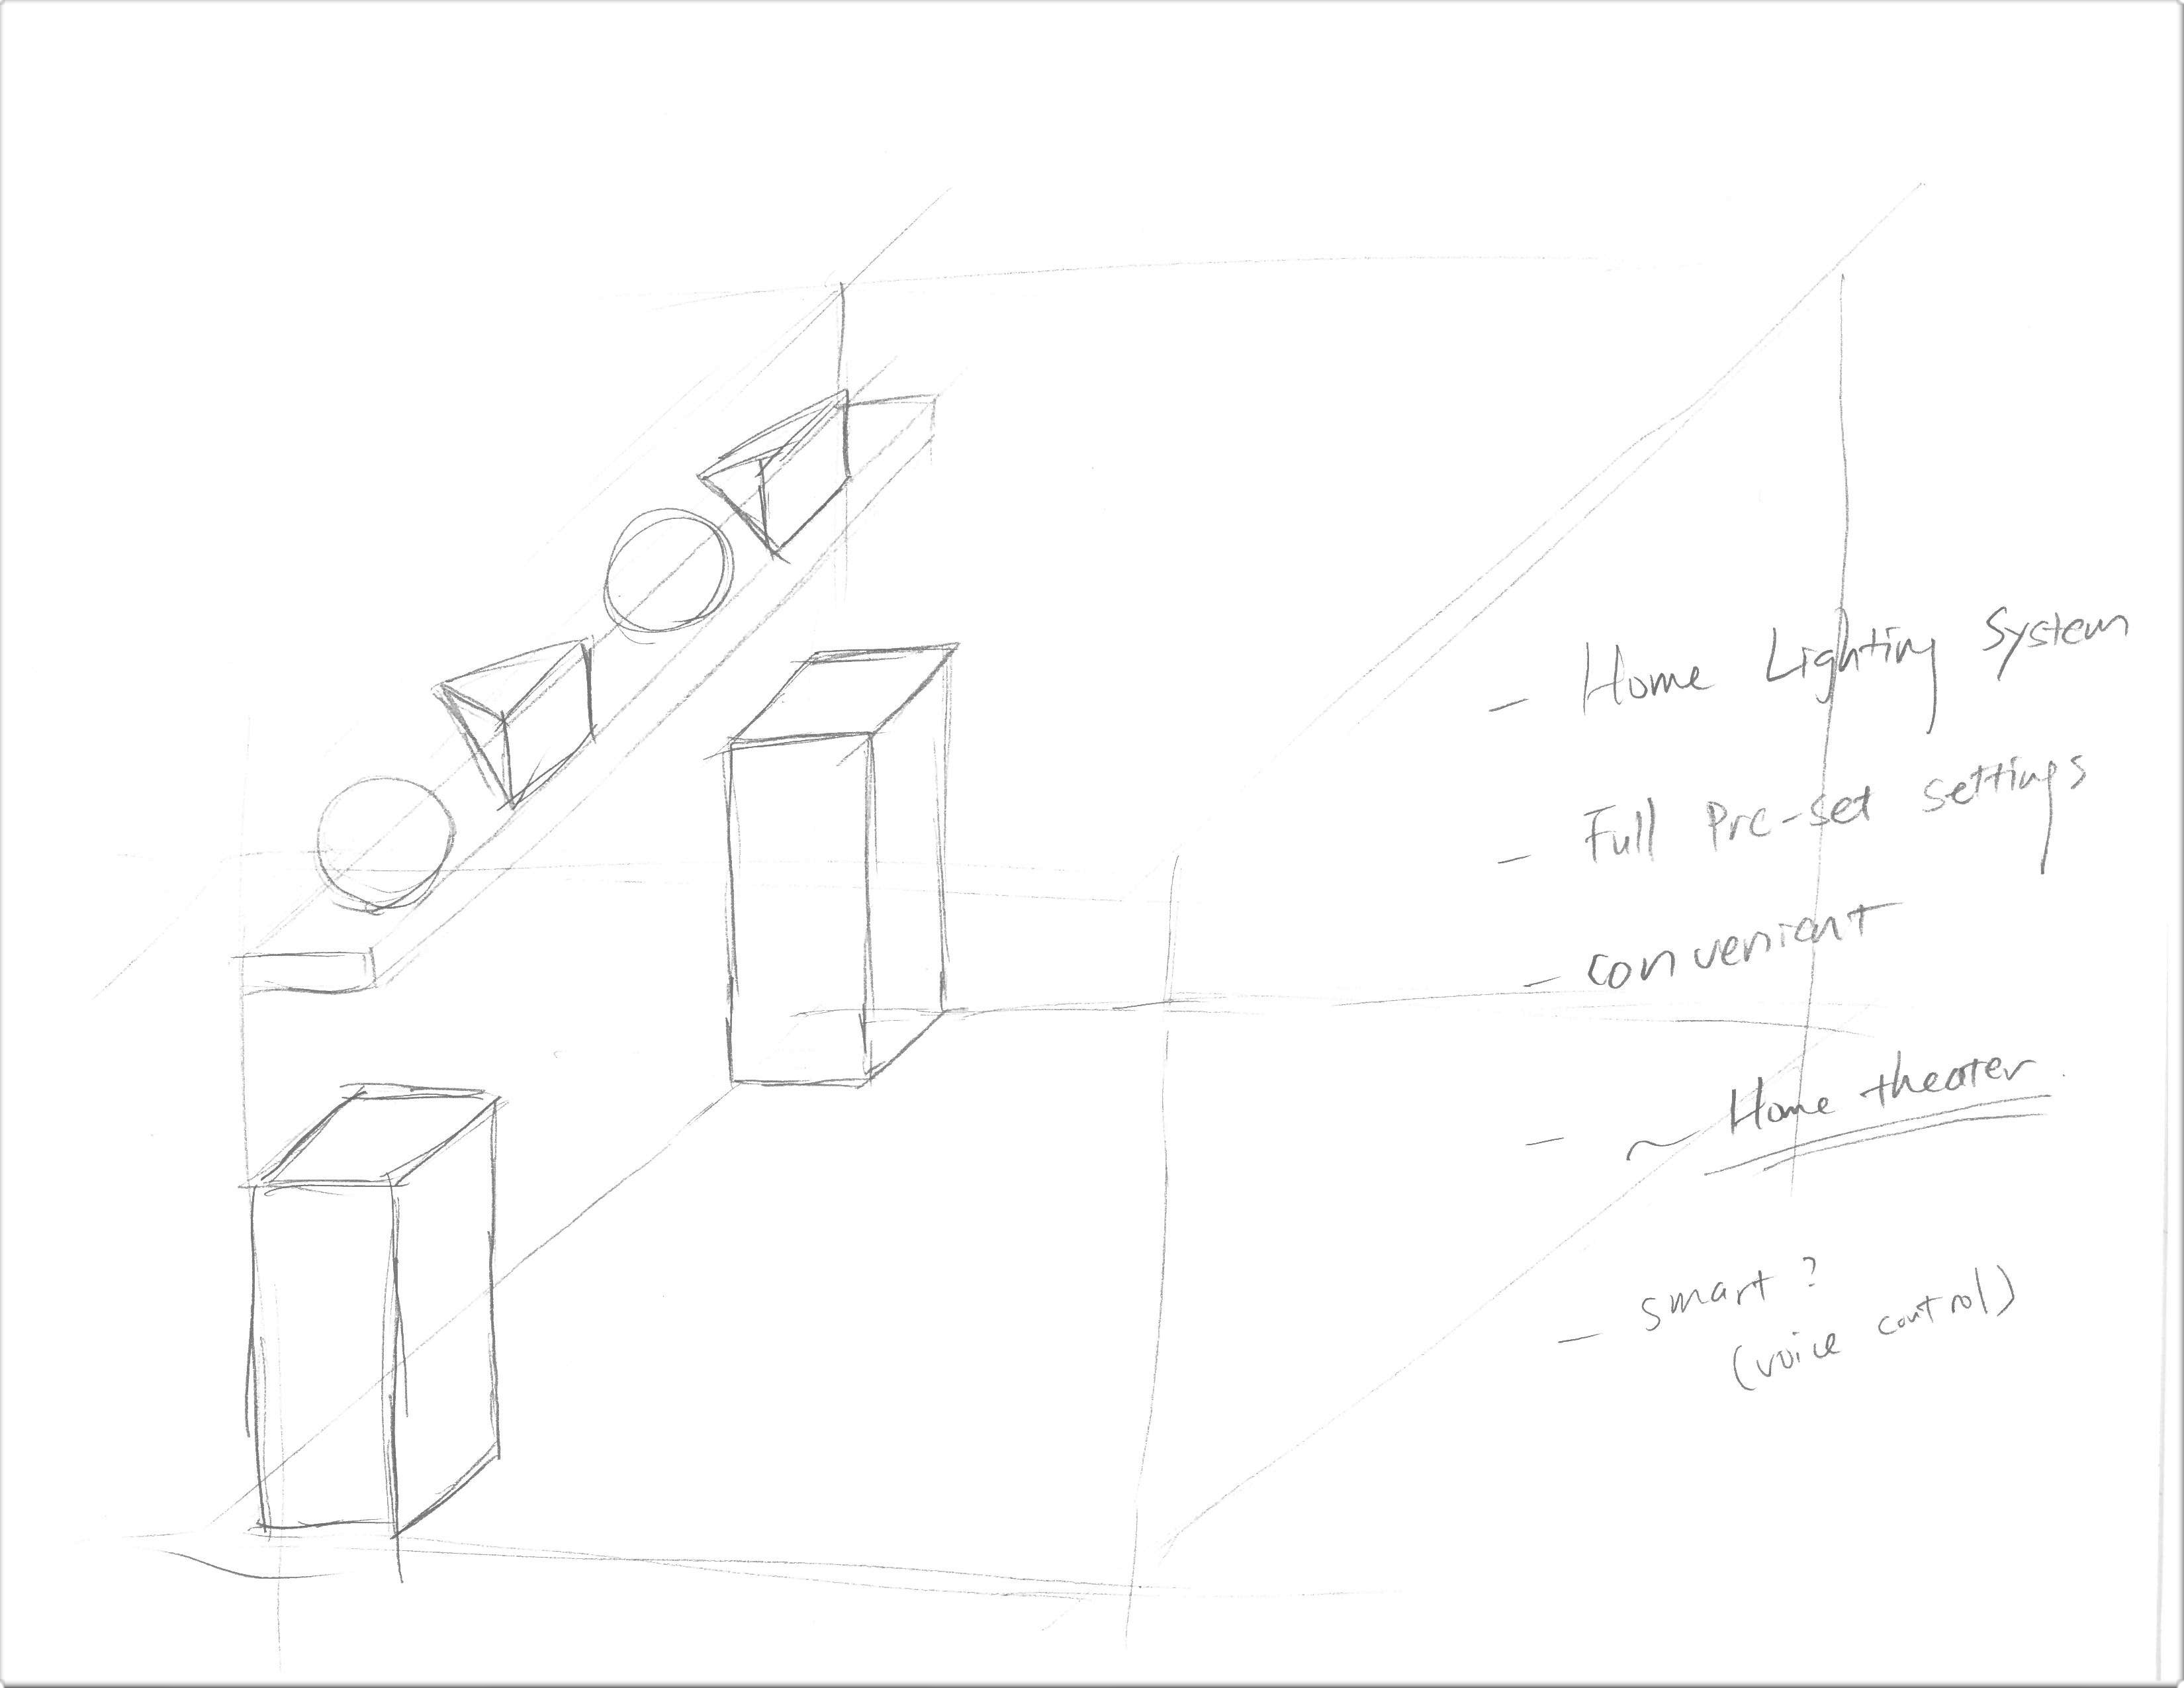 - Home Lighting System
- Full Pre-set settings
- convenient
- ~ Home theater
- smart?
(voice control)